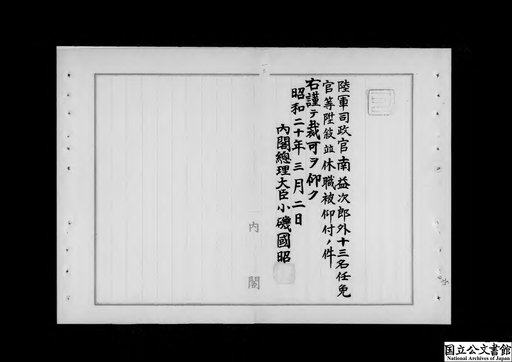 陸軍司政官南益次郎外十三名任免
官等陞敍竝休職被仰付ノ件
右謹テ裁可ヲ仰ク
昭和二十年三月二日
內閣總理大臣小磯國昭
內閣
国立公文書館
National Archives of Japan